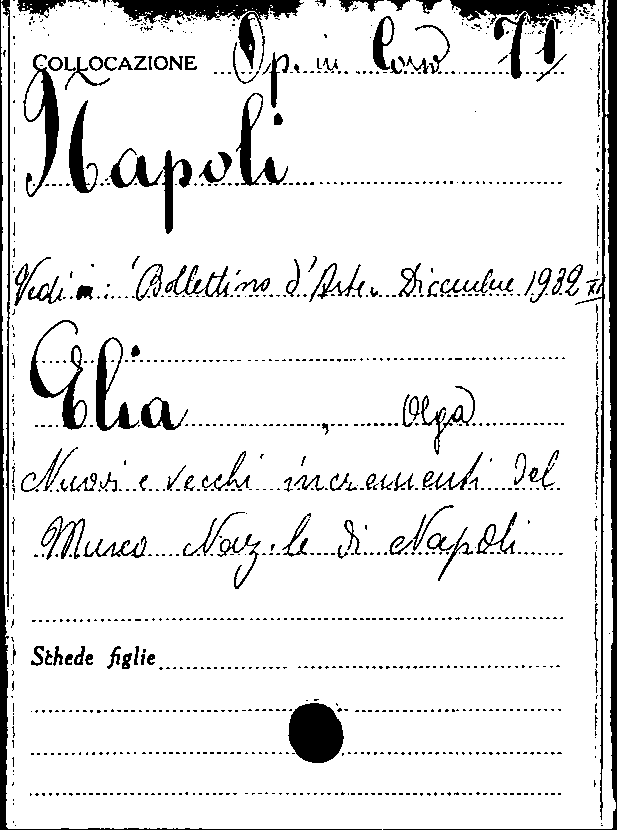 COLLOCAZIONE Op. in Corso 71
Napoli
Vedi in: "Bollettino d'Arte. Dicembre 1932 XI
Elia, Olga
Nuovi e vecchi incrementi del
Museo Naz.le di Napoli
Schede figlie